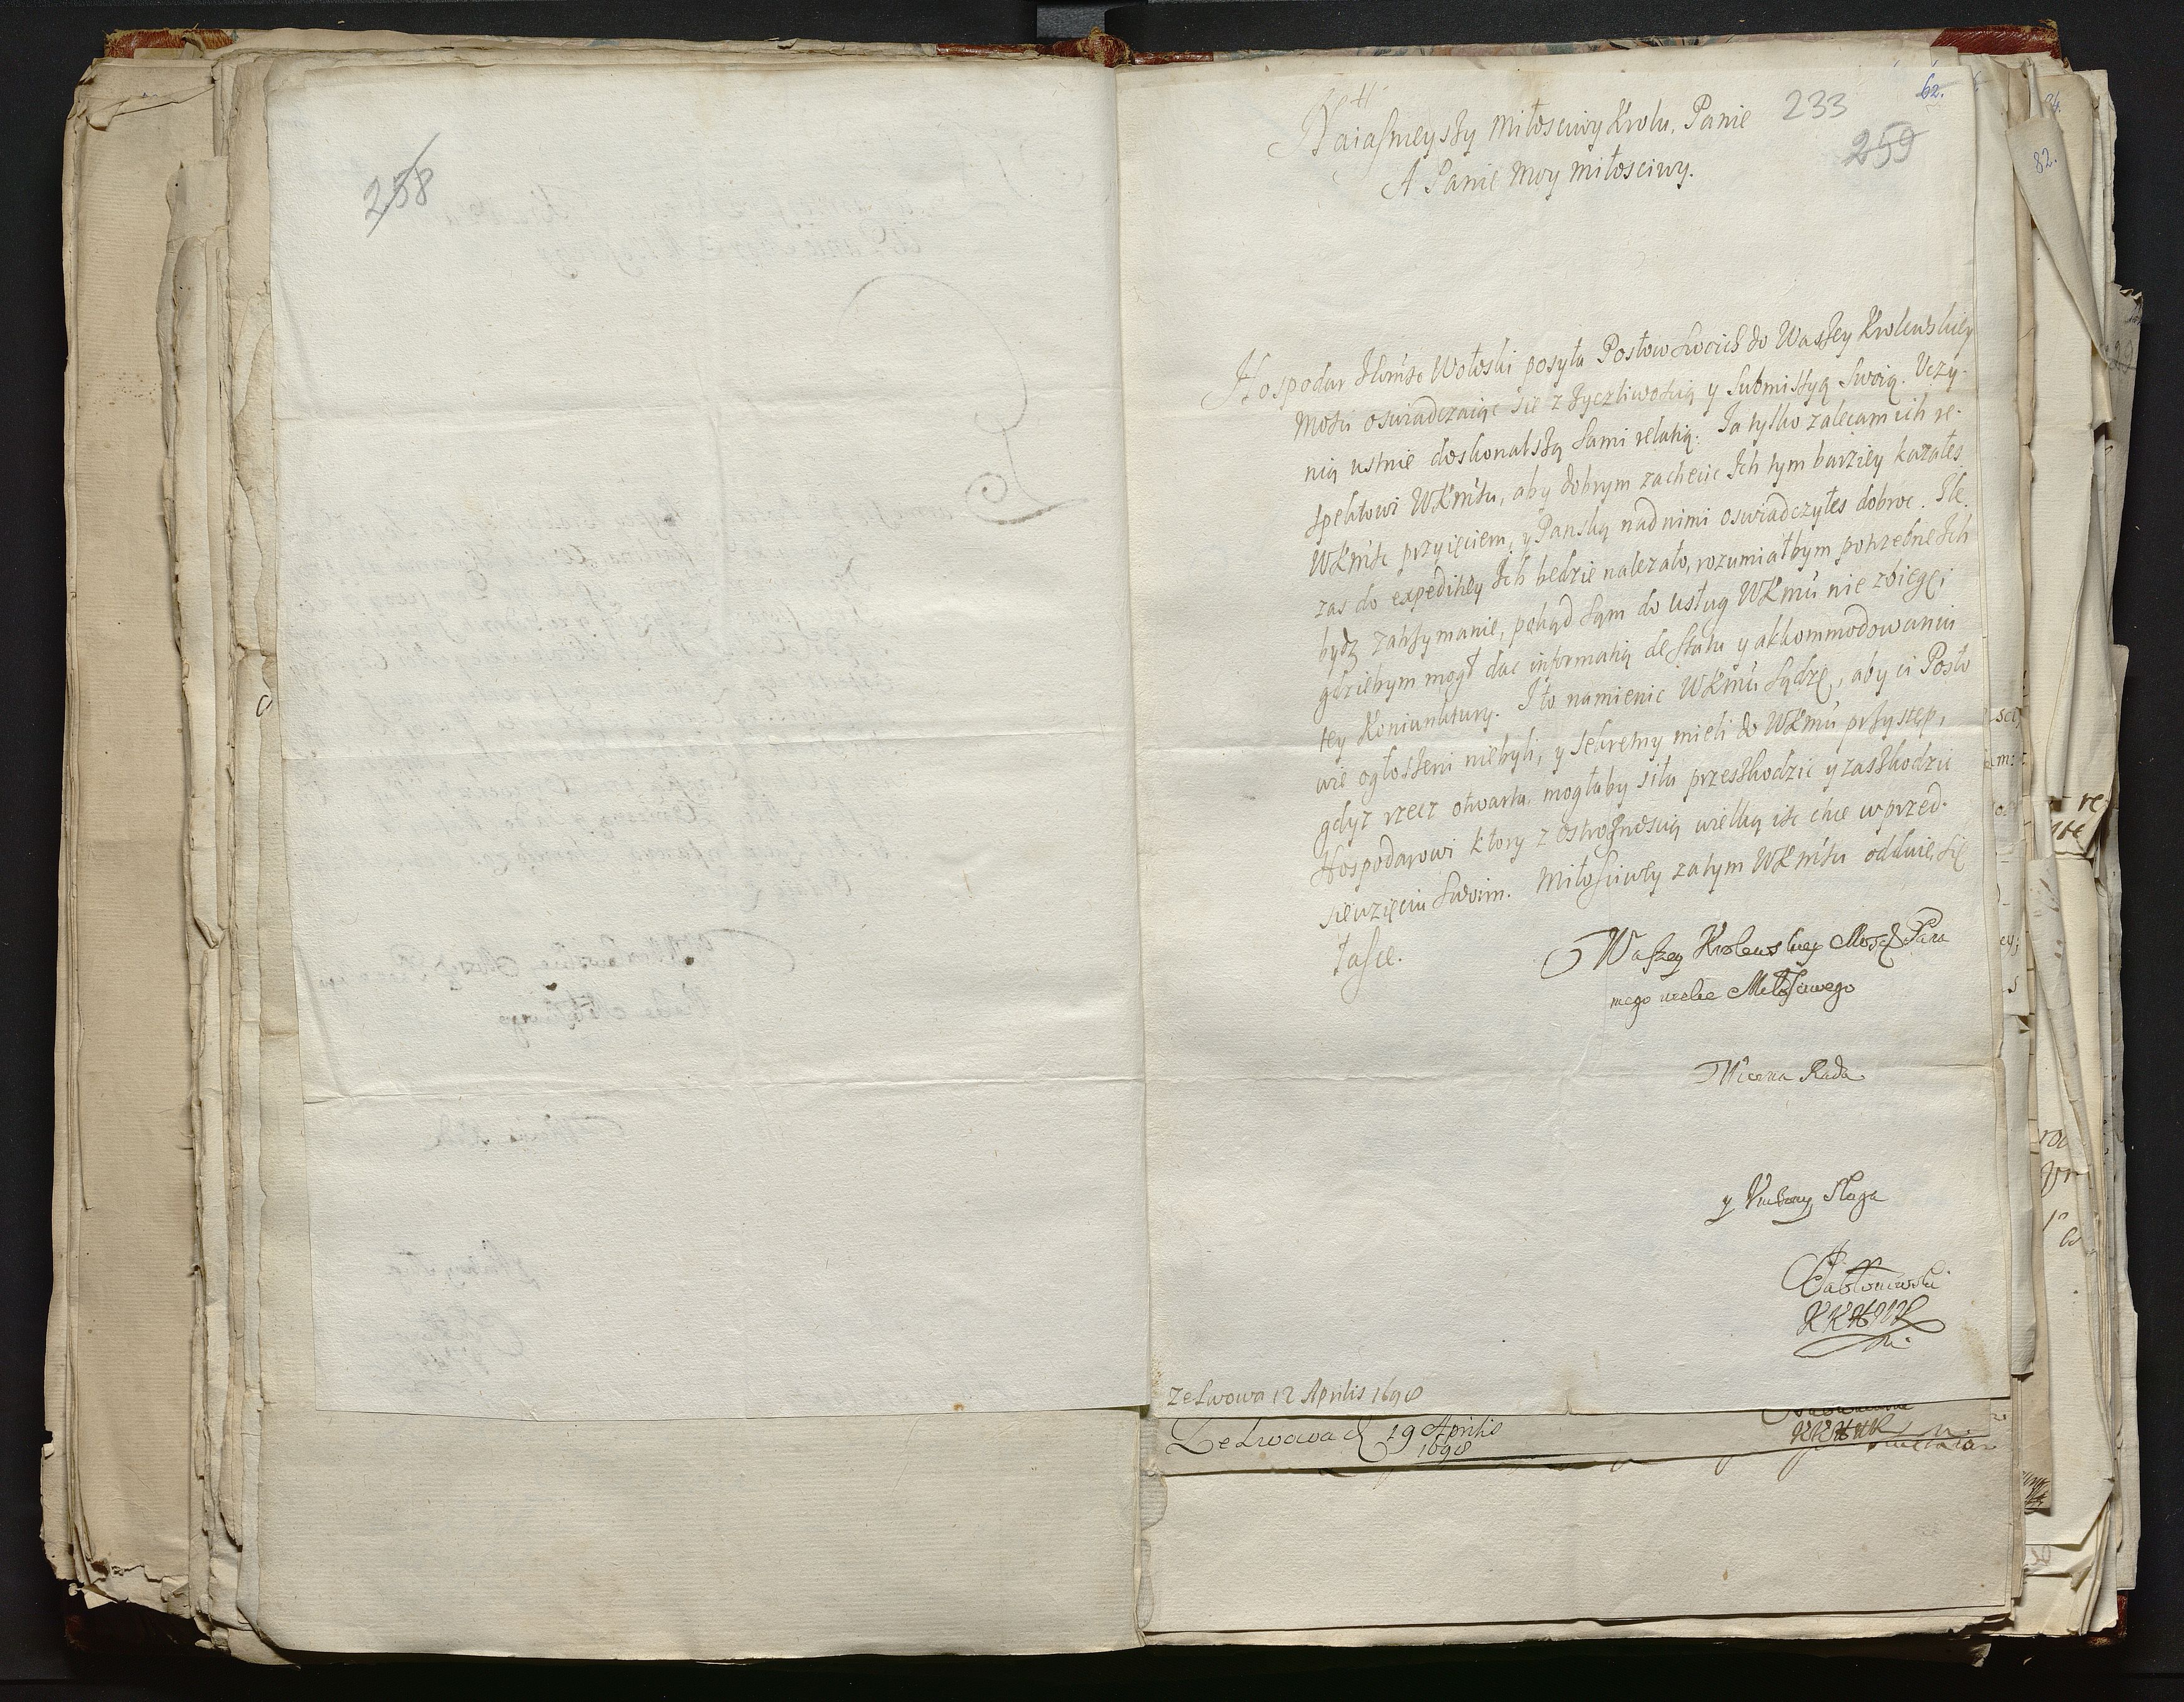 258
62.
233
259
Naiasnieyszy Miłosciwy Krolu, Panie
A Panie Moy Miłosciwy.
Hospodar Jmśc Wołoski posyła Posłow swoich do Waszey Krolewskiey
Mości oswiadczaiąc się z życzliwością y submissyą swoią. Uczy-
nią ustnie doskonalszą sami relatią. Ja tylko zalecam ich re-
spektowi WKmśu, aby dobrym zachecic Ich tym barziey kazałes
WKmśc przyięciem, y Panską nad nimi oswiadczyłes dobroc. Ile
zas do expeditiey Ich będzie należało, rozumiałbym potrzebne Ich
bydz zatrzymanie, pokąd sąm do usług WKmśu nie zbiegę,
gdziebym mogł dac informatią de statu y akkommodowaniu
tey Koniunktury. I to namienic WKmśu sądzę, aby ci Posło
wie ogłoszeni niebyli, y sekretny mieli do WKmśu przystęp,
gdyż rzecz otwarta, mogłaby siła przeszkodzic y zaszkodzic
Hospodarowi ktory z ostrożnoscią wielką iśc chce w przed-
sięwzięciu swoim. Miłosciwey zatym WKmśu oddaie się
łasce.
Waszey Krolewskiey Mosci Pana
mego wielce Miłosciwego
Wierna Rada
y Unizony Sługa
Jabłonowski
KKHWK
Ze Lwowa 12 Aprilis 1698
Ze Lwowa d 19 Aprilis
1698
KKHWK
82.